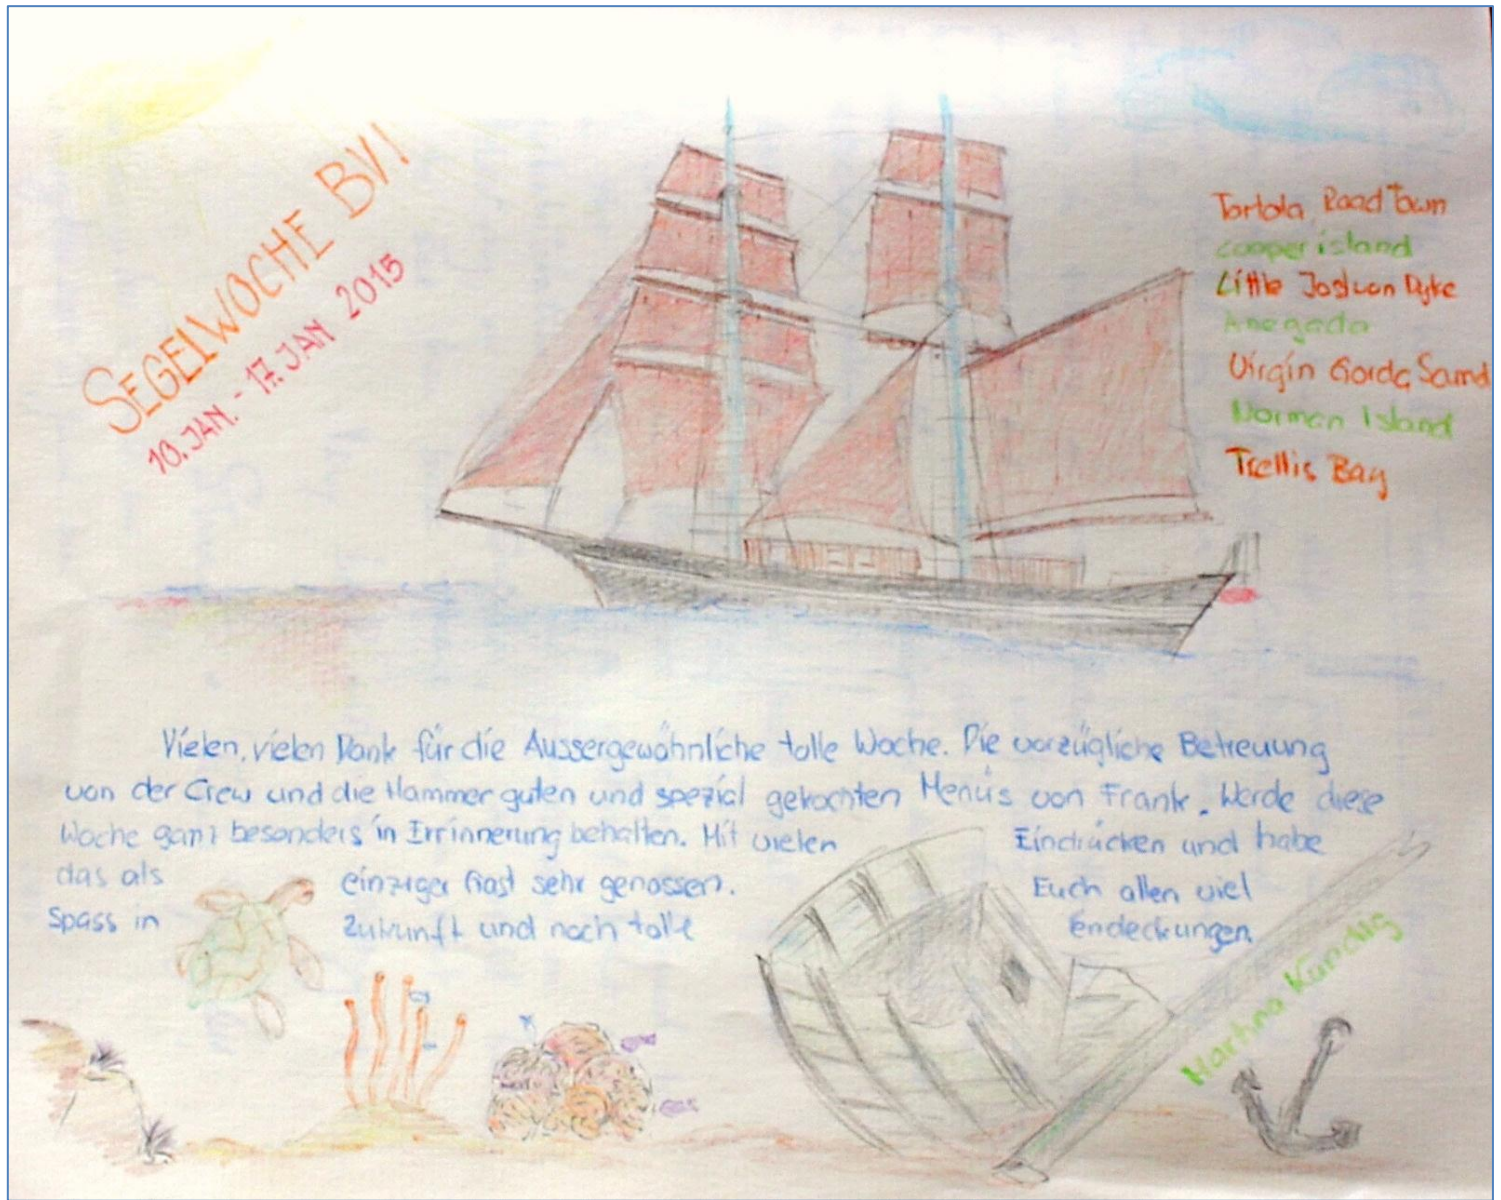 SEGELWOCHE BVI
10. JAN. - 17. JAN 2015
Tortola Road Town
Cooper island
Little Jost van Dyke
Anegada
Virgin Gorda Sound
Norman Island
Trellis Bay
Vielen, vielen Dank für die Aussergewöhnliche tolle Woche. Die vorzügliche Betreuung
von der Crew und die Hammer guten und spezial gekochten Menüs von Frank. Werde diese
Woche ganz besonders in Errinnerung behalten. Mit vielen Eindrücken und habe
das als einziger Gast sehr genossen. Euch allen viel
Spass in Zukunft und noch tolle Endeckungen
Martina Kündig